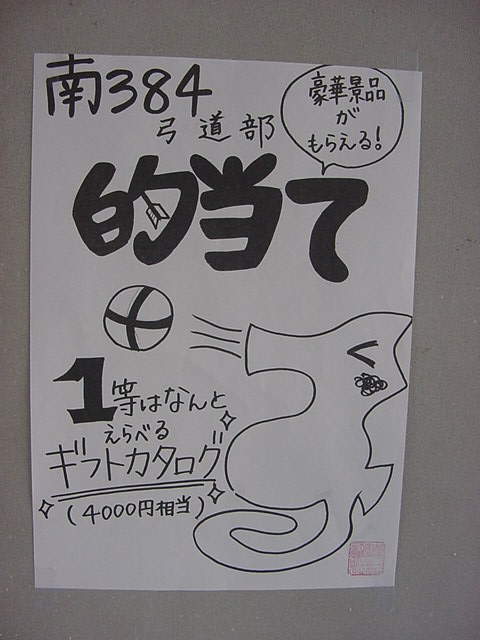 南384
弓道部
豪華景品
が
もらえる!
的当て
1等はなんと
えらべる
ギフトカタログ
(4000円相当)